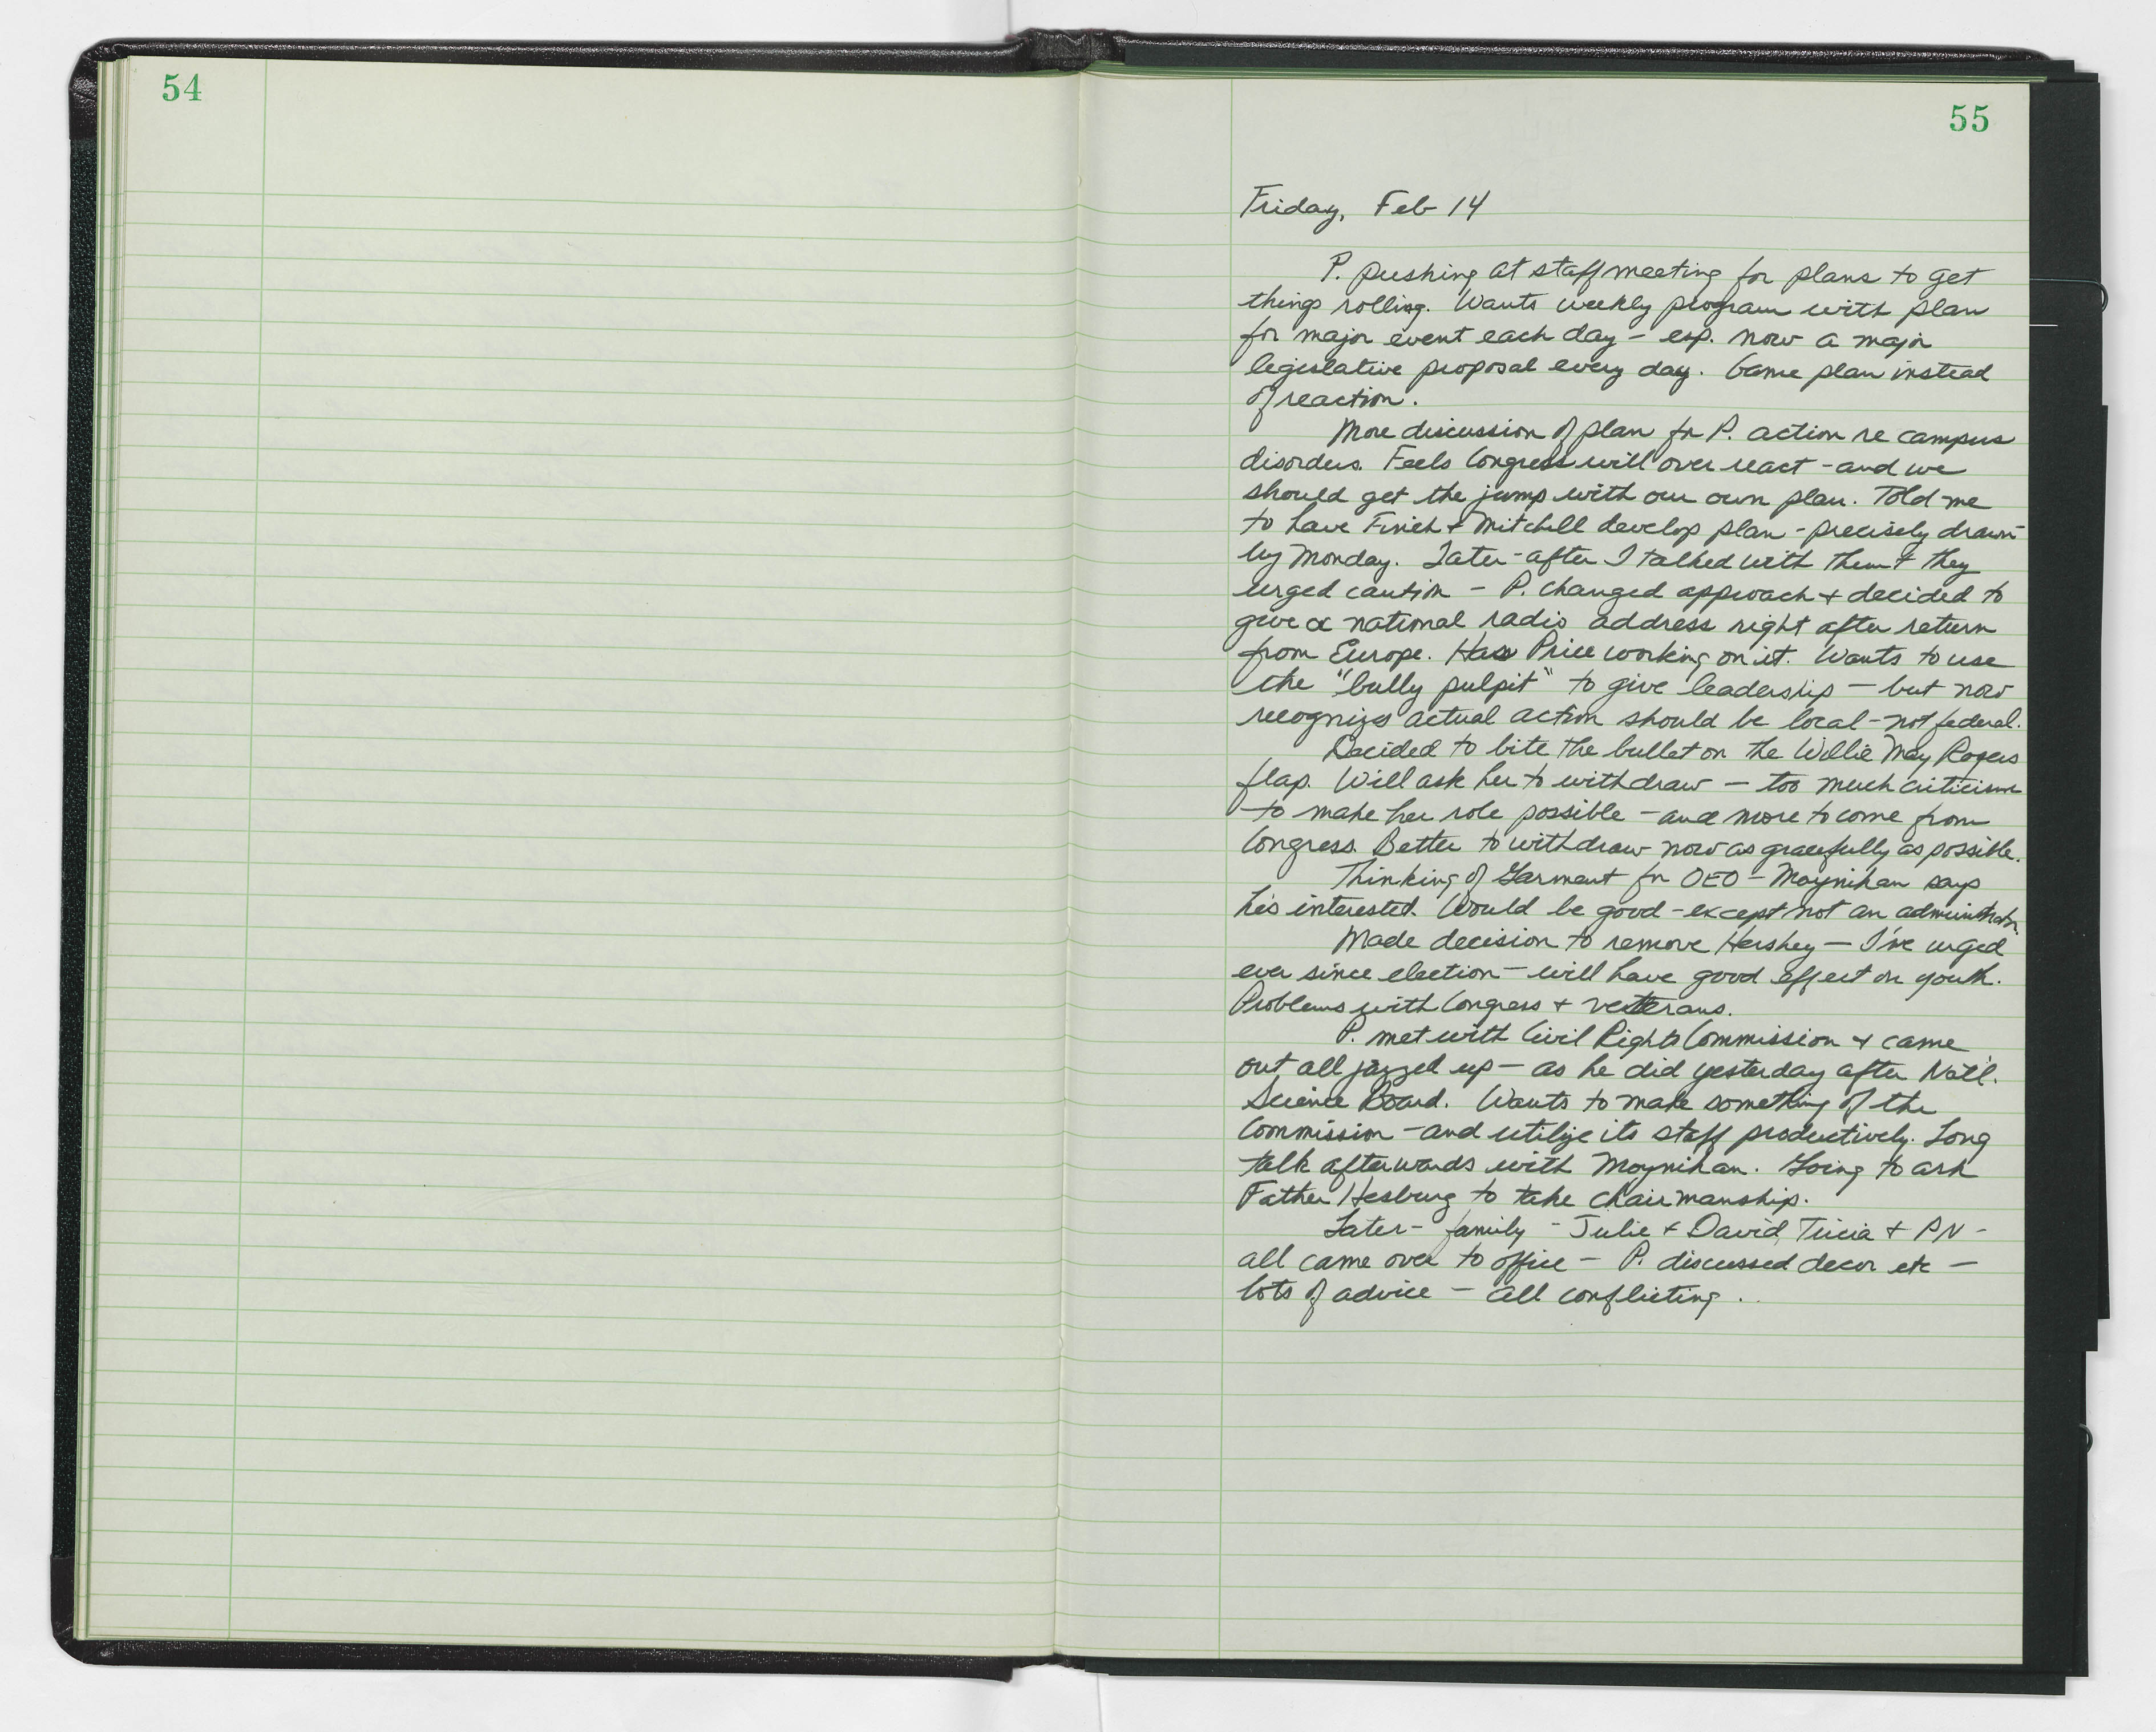 54
55
Friday, Feb 14
P. pushing at staff meeting for plans to get
things rolling. Wants weekly program with plan
for major event each day - esp. now a major
legislative proposal every day. Game plan instead
of reaction.
More discussion of plan for P. action re campus
disorders. Feels Congress will over react - and we
should get the jump with our own plan. Told me
to have Finch + Mitchell develop plan - precisely drawn -
by Monday. Later - after I talked with them + they
urged caution - P. changed approach + decided to
give a national radio address right after return
from Europe. Has Price working on it. Wants to use
the "bully pulpit" to give leadership - but now
recognizes actual action should be local - not federal.
Decided to bite the bullet on the Willie May Rogers
flap. Will ask her to withdraw - too much criticism
to make her role possible - and more to come from
Congress. Better to withdraw now as gracefully as possible.
Thinking of Garment for OEO - Moynihan says
he's interested. Would be good - except not an administrator.
Made decision to remove Hershey - I've urged
ever since election - will have good effect on youth.
Problems with Congress + veterans.
P. met with Civil Rights Commission + came
out all jazzed up - as he did yesterday after Nat'l.
Science Board. Wants to make something of the
Commission - and utilize its staff productively. Long
talk afterwards with Moynihan. Going to ask
Father Hesburg to take chairmanship.
Later - family - Julie + David, Tricia + PN -
all came over to office - P. discussed decor etc -
lots of advice - all conflicting.